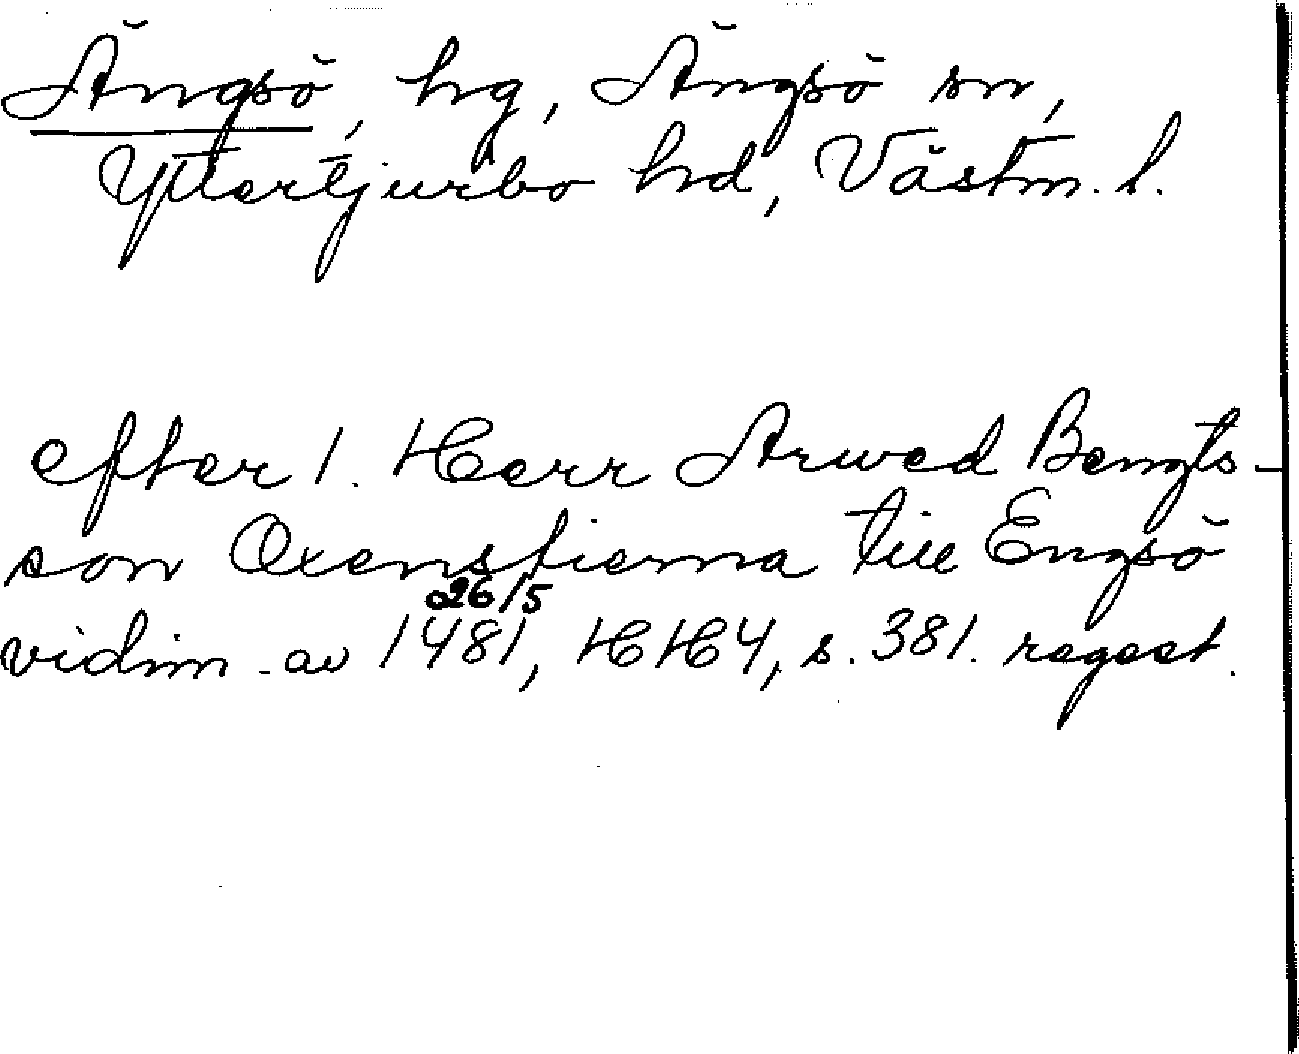 Ängsö, hg, Ängsö sn,
Yttertjurbo hd, Västm. l.
efter 1. Herr Arwed Bengts-
son Oxenstierna till Engsö
26/5
vidim. av 1481, HH4, s. 381. regest.